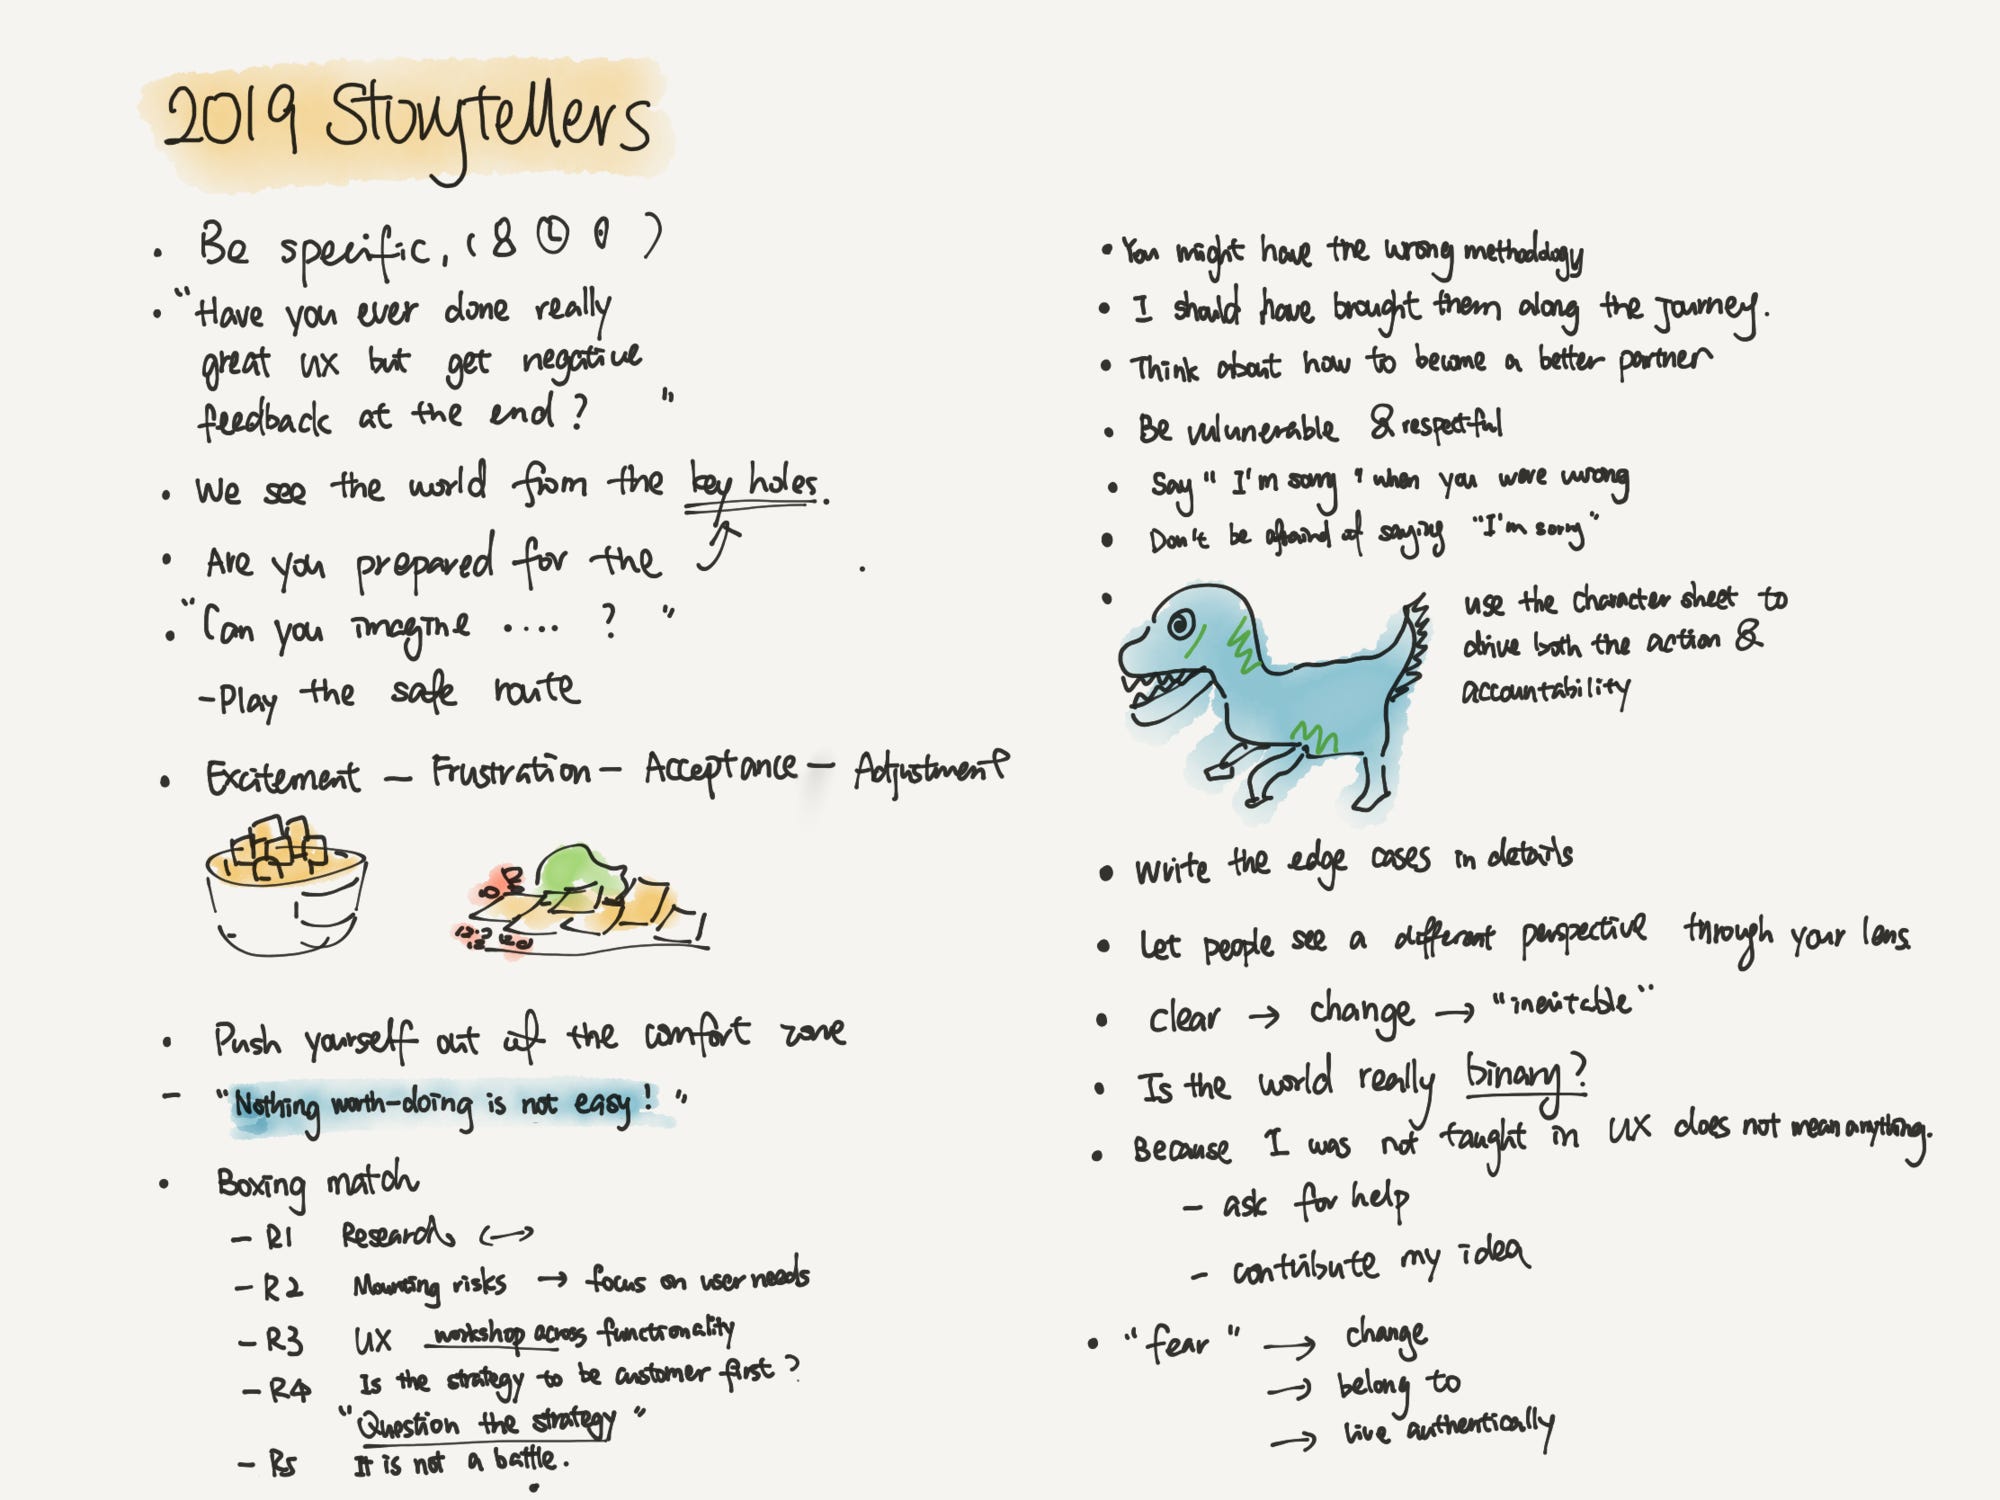 2019 Storytellers
• Be specific, ( )
• "Have you ever done really
great UX but get negative
feedback at the end? "
• We see the world from the key holes.
• Are you prepared for the
• "Can you imagine .... ? "
- Play the safe route
• Excitement — Frustration — Acceptance — Adjustment
• Push yourself out of the comfort zone
- "Nothing worth-doing is not easy! "
• Boxing match
- R1 Research ↔
- R2 Mounting risks → focus on user needs
- R3 UX workshop across functionality
- R4 Is the strategy to be customer first?
"Question the strategy"
- R5 It is not a battle.
• You might have the wrong methodology
• I should have brought them along the journey.
• Think about how to become a better partner
• Be vulunerable & respectful
• Say "I'm sorry" when you were wrong
• Don't be afraind of saying "I'm sorry"
• use the character sheet to
drive both the action &
accountability
• Write the edge cases in details
• Let people see a different perspective through your lens
• clear → change → "inevitable"
• Is the world really binary?
• Because I was not taught in UX does not mean anything.
- ask for help
- contribute my idea
• "fear" → change
→ belong to
→ live authentically